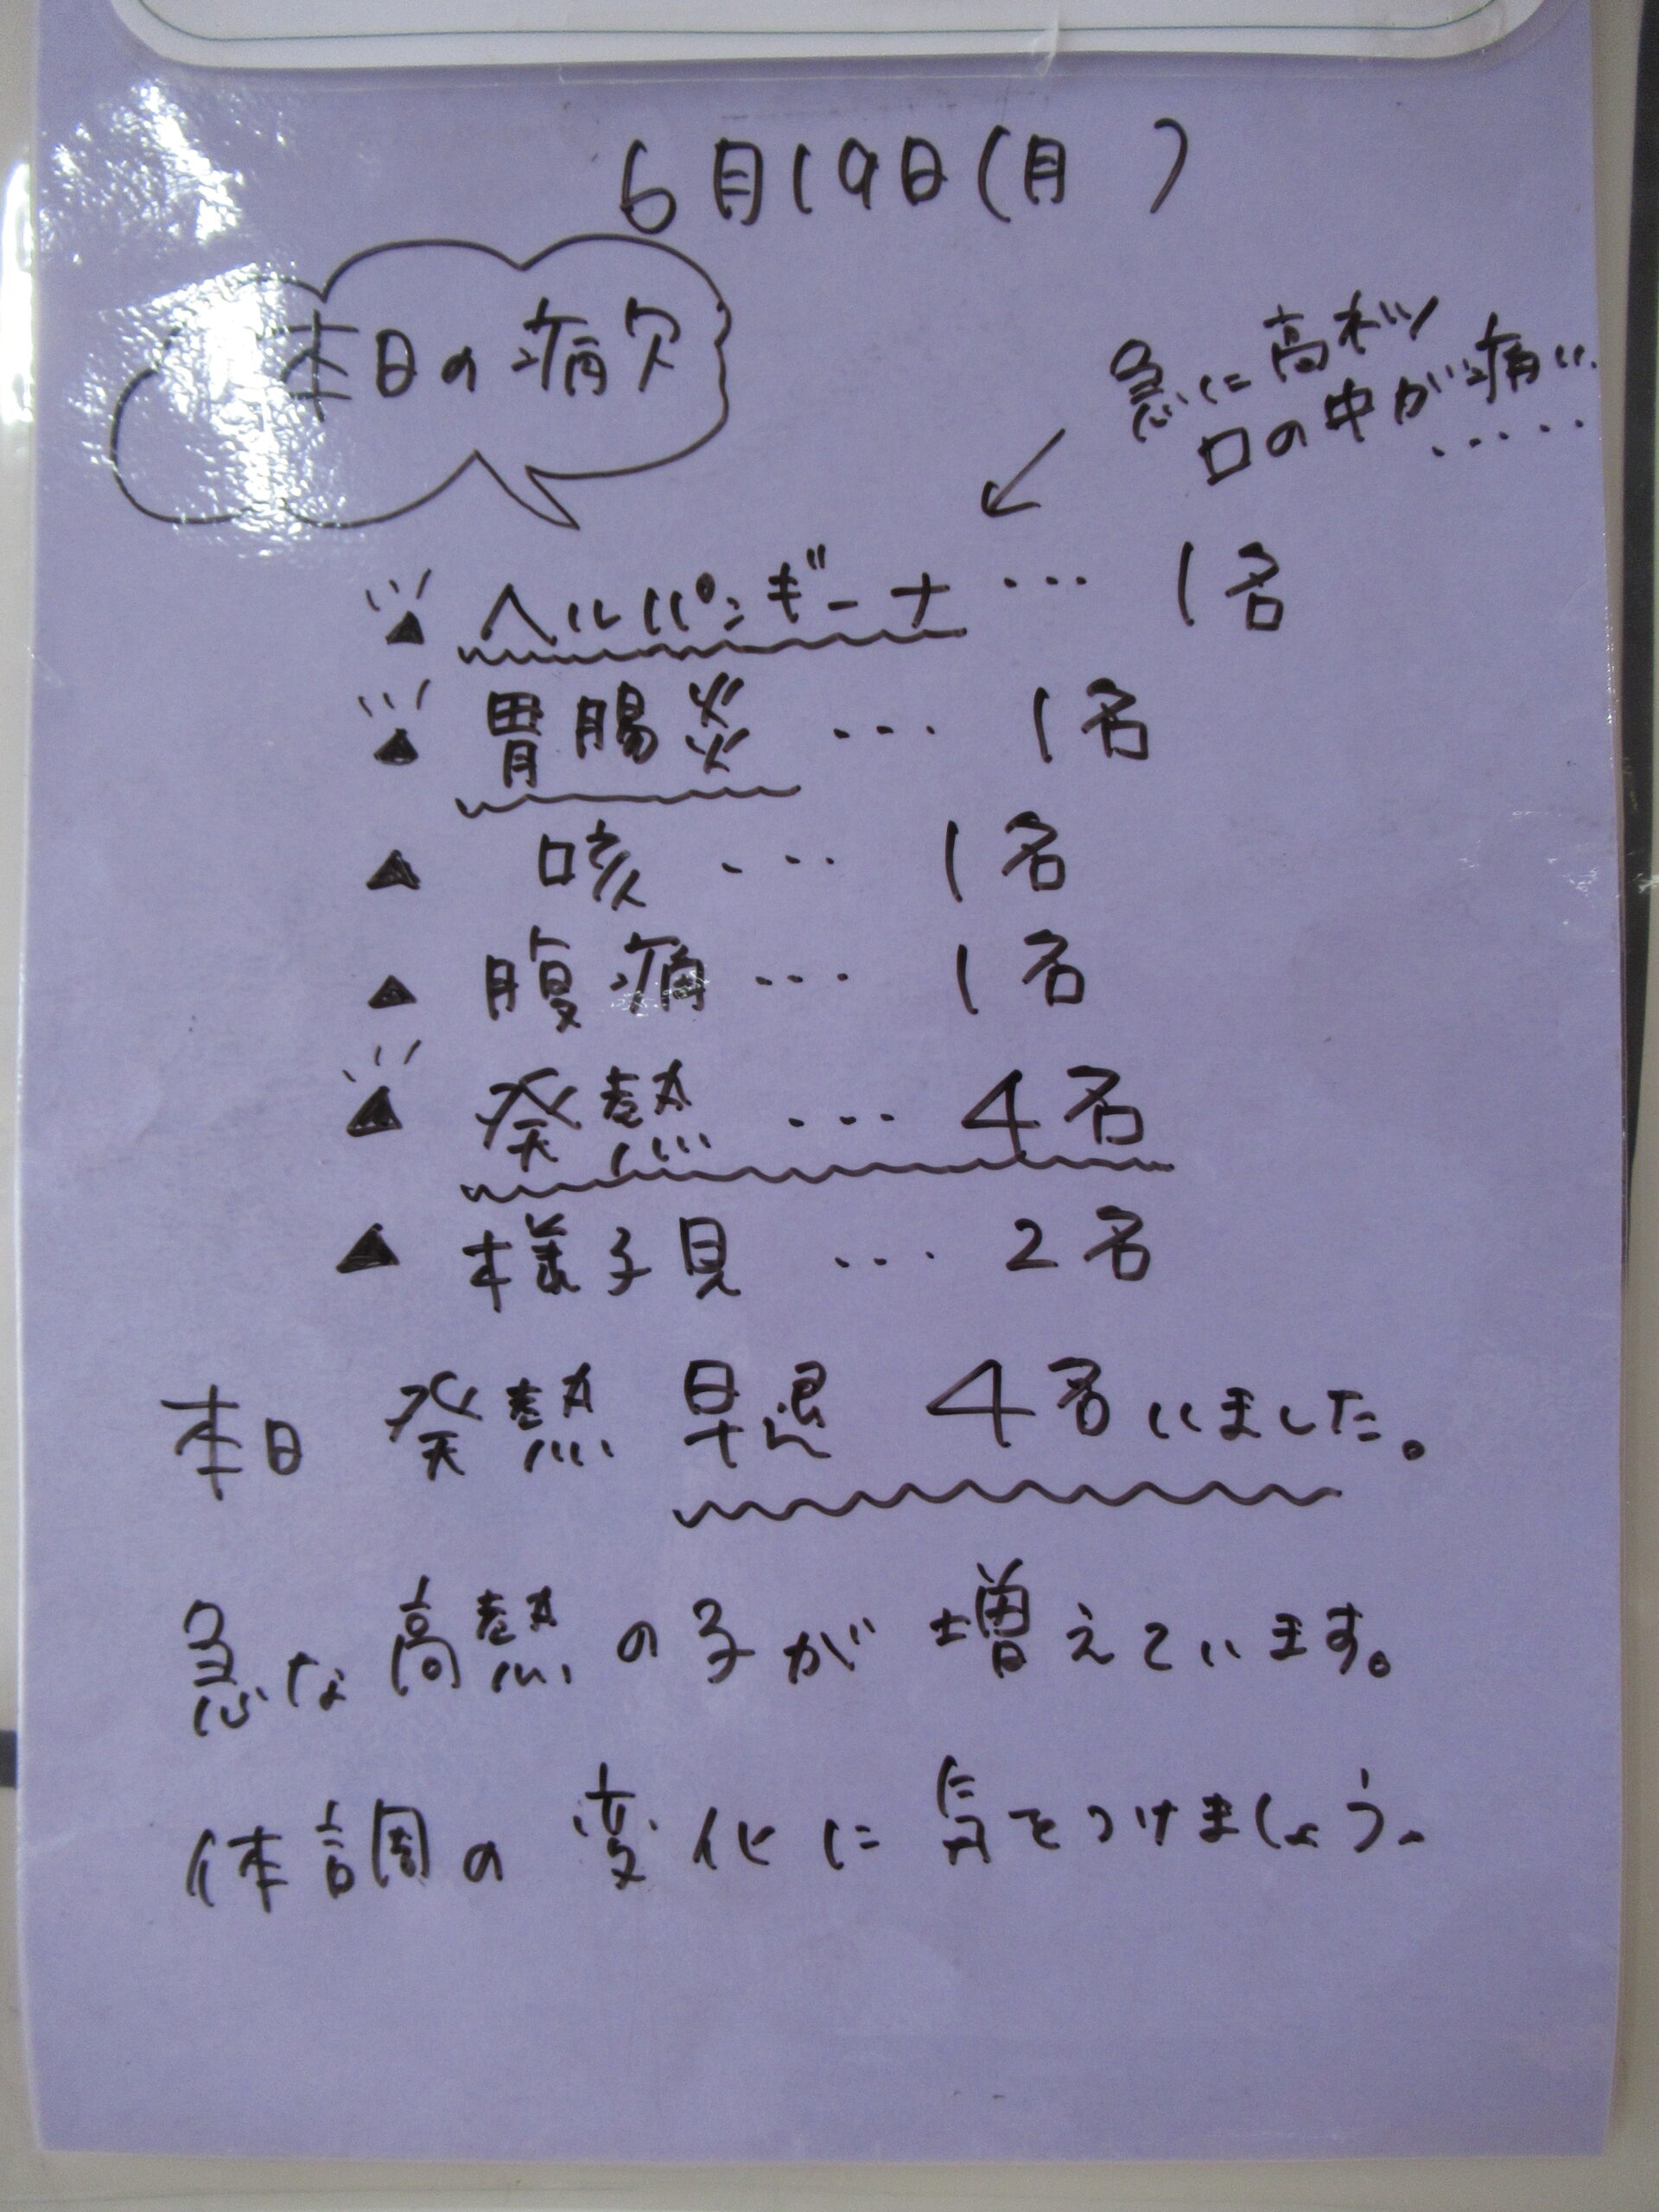 6月19日(月 )
本日の病欠
急に高ネツ
口の中が痛い
・・・・・
▲ ヘルパンギーナ … 1名
▲ 胃腸炎 … 1名
▲ 咳 … 1名
▲ 腹痛 … 1名
▲ 発熱 … 4名
▲ 様子見 … 2名
本日 発熱 早退 4名いました。
急な高熱の子が増えています。
体調の変化に気をつけましょう。